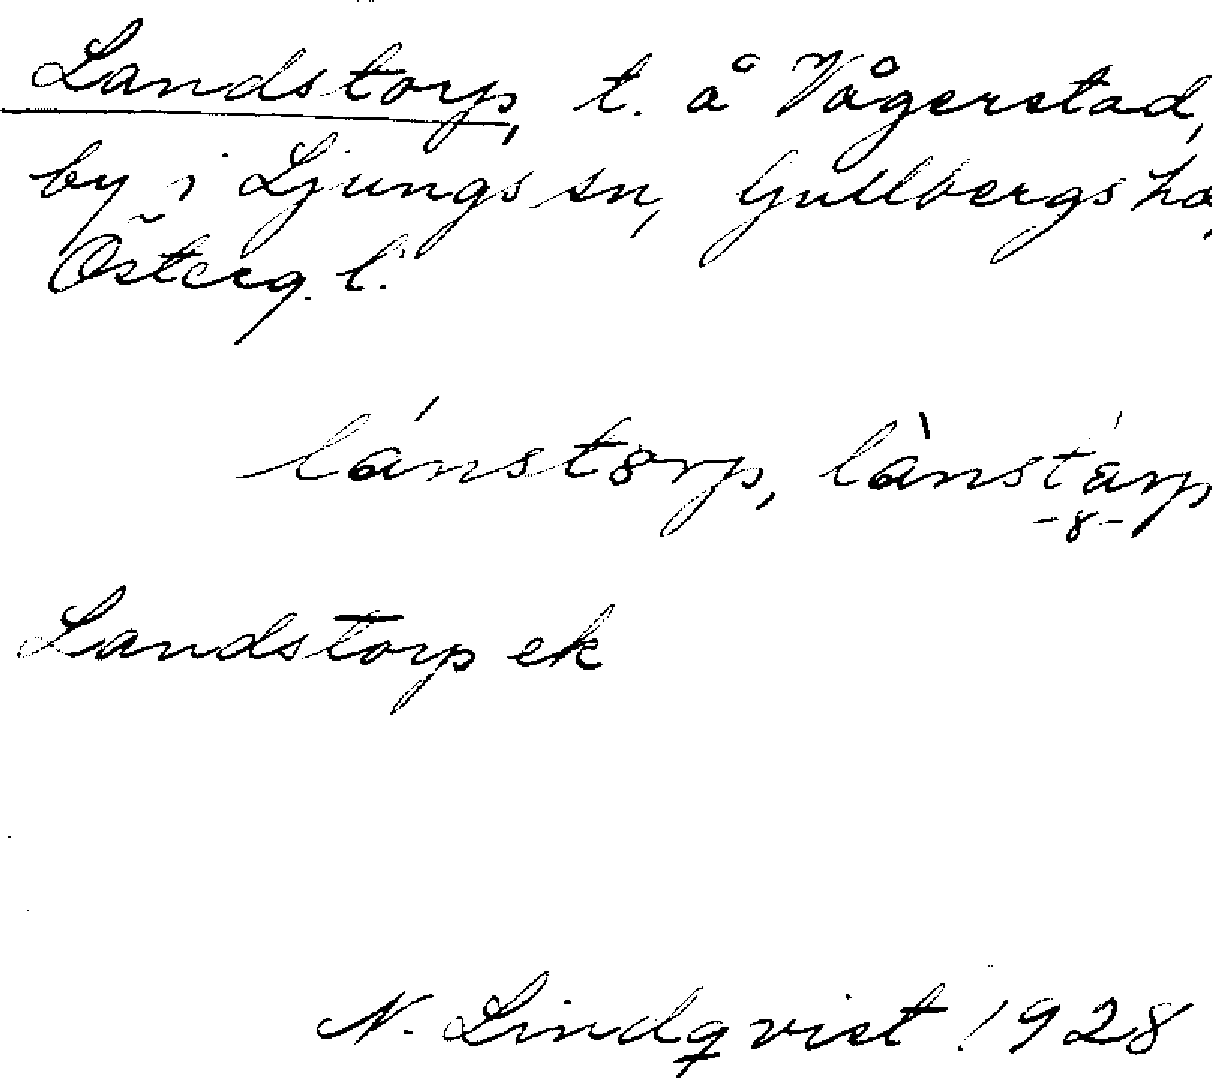 Landstorp, t. å Vågerstad,
by i Ljungs sn, Gullbergs hd,
Österg. l.
lánstørp, lànstárp
-8-
Landstorp ek
N. Lindqvist 1928